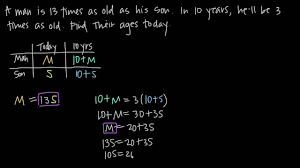 A man is 13 times as old as his son. In 10 years, he'll be 3
times as old. Find their ages today.
Today 10 yrs
Man M 10+M
Son S 10+S
M = 13S
10+M = 3(10+S)
10+M = 30+3S
M = 20+3S
13S = 20+3S
10S = 20